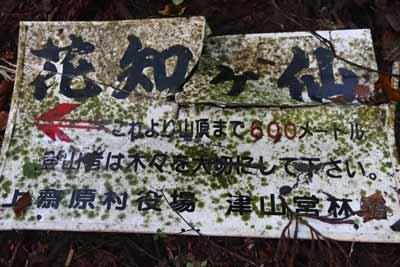 花知ヶ仙
これより山頂まで600メートル
登山者は木々を大切にして下さい。
上齋原村役場 津山営林